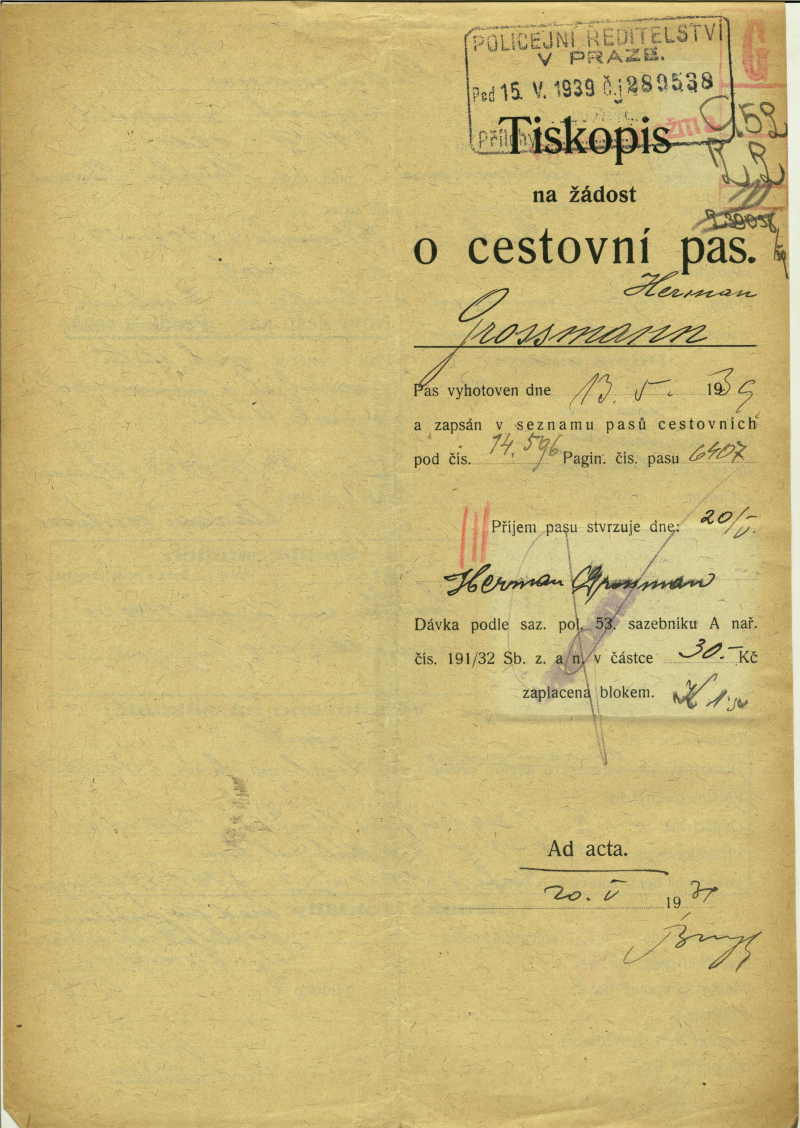 POLICEJNÍ ŘEDITELSTVÍ
V PRAZE.
Pod 15. V. 1939 Č.j 289538
Přílohy
G
G. 52
Tiskopis
na žádost
o cestovní pas.
Herman
Grossmann
Pas vyhotoven dne 13. 5. 1939
a zapsán v seznamu pasů cestovních
pod čís. 14.596 Pagin. čís. pasu 6407
III
Příjem pasu stvrzuje dne: 20/V.
Herman Grossman
Dávka podle saz. pol. 53. sazebníku A nař.
čís. 191/32 Sb. z. a n. v částce 30.- Kč
zaplacena blokem.
Ad acta.
20. V 19